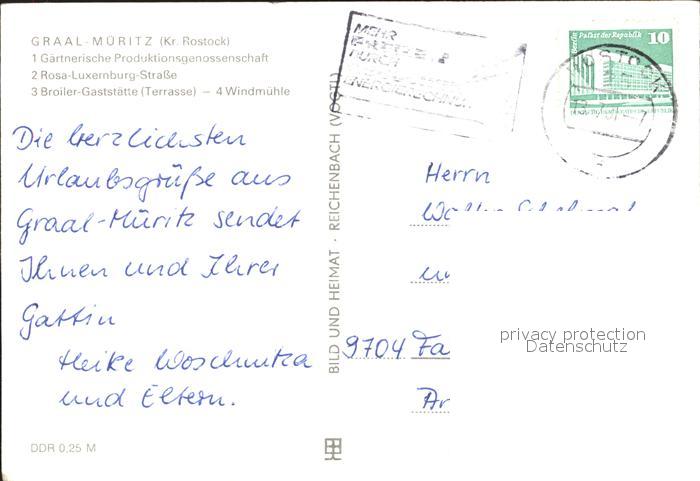 GRAAL-MÜRITZ (Kr. Rostock)
1 Gärtnerische Produktionsgenossenschaft
2 Rosa-Luxemburg-Straße
3 Broiler-Gaststätte (Terrasse) – 4 Windmühle
Die herzlichsten
Urlaubsgrüße aus
Graal-Müritz sendet
Ihnen und Ihrer
Gattin
Heike
und Eltern.
DDR 0,25 M
BILD UND HEIMAT · REICHENBACH (VOGTL)
MEHR
DURCH
Berlin Palast der Republik 10
ROSTOCK
Herrn
9704 Fa
privacy protection
Datenschutz